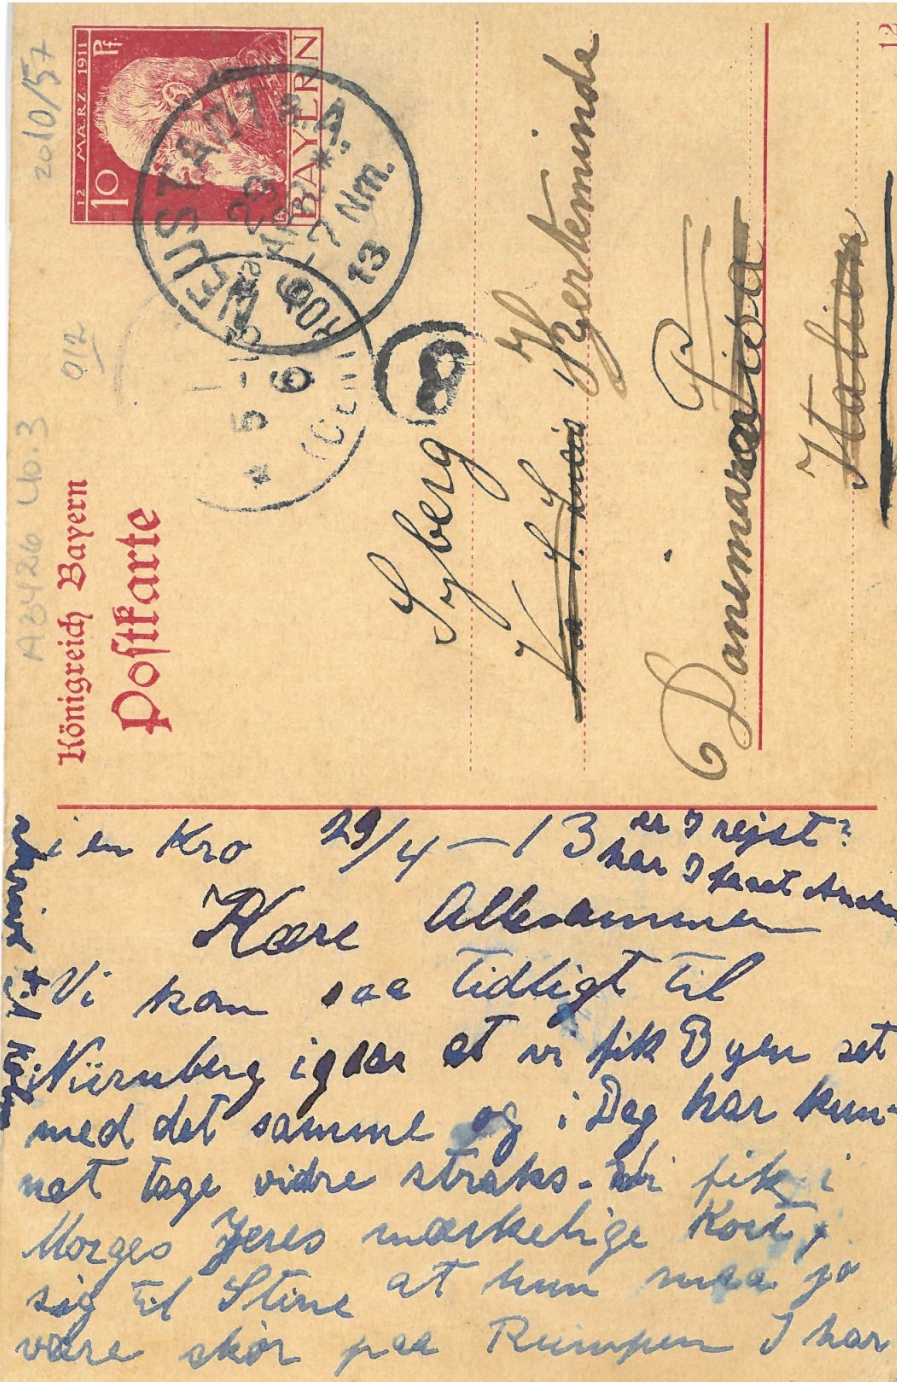 2010/57
A3426 Lb.3
012
12. MÄRZ 1911
10 Pf.
BAYERN
NEUSTADT a.A.
29 APR.
6-7 Nm.
13
8
Königreich Bayern
Postkarte
Syberg
Via S. Lucia Kjerteminde
Danemark Pisa
Italien
i en Kro 29/4 - 13
er I rejst?
har I faaet
Kære Allesammen
Vi kom saa tidligt til
Nürnberg igaar at vi fik Byen set
med det samme og i Dag har kun-
net tage vidre straks. Vi fik i
Morges Jeres mærkelige Kort,
sig til Stine at hun maa jo
være skør paa Rumpen I har
skrevet til